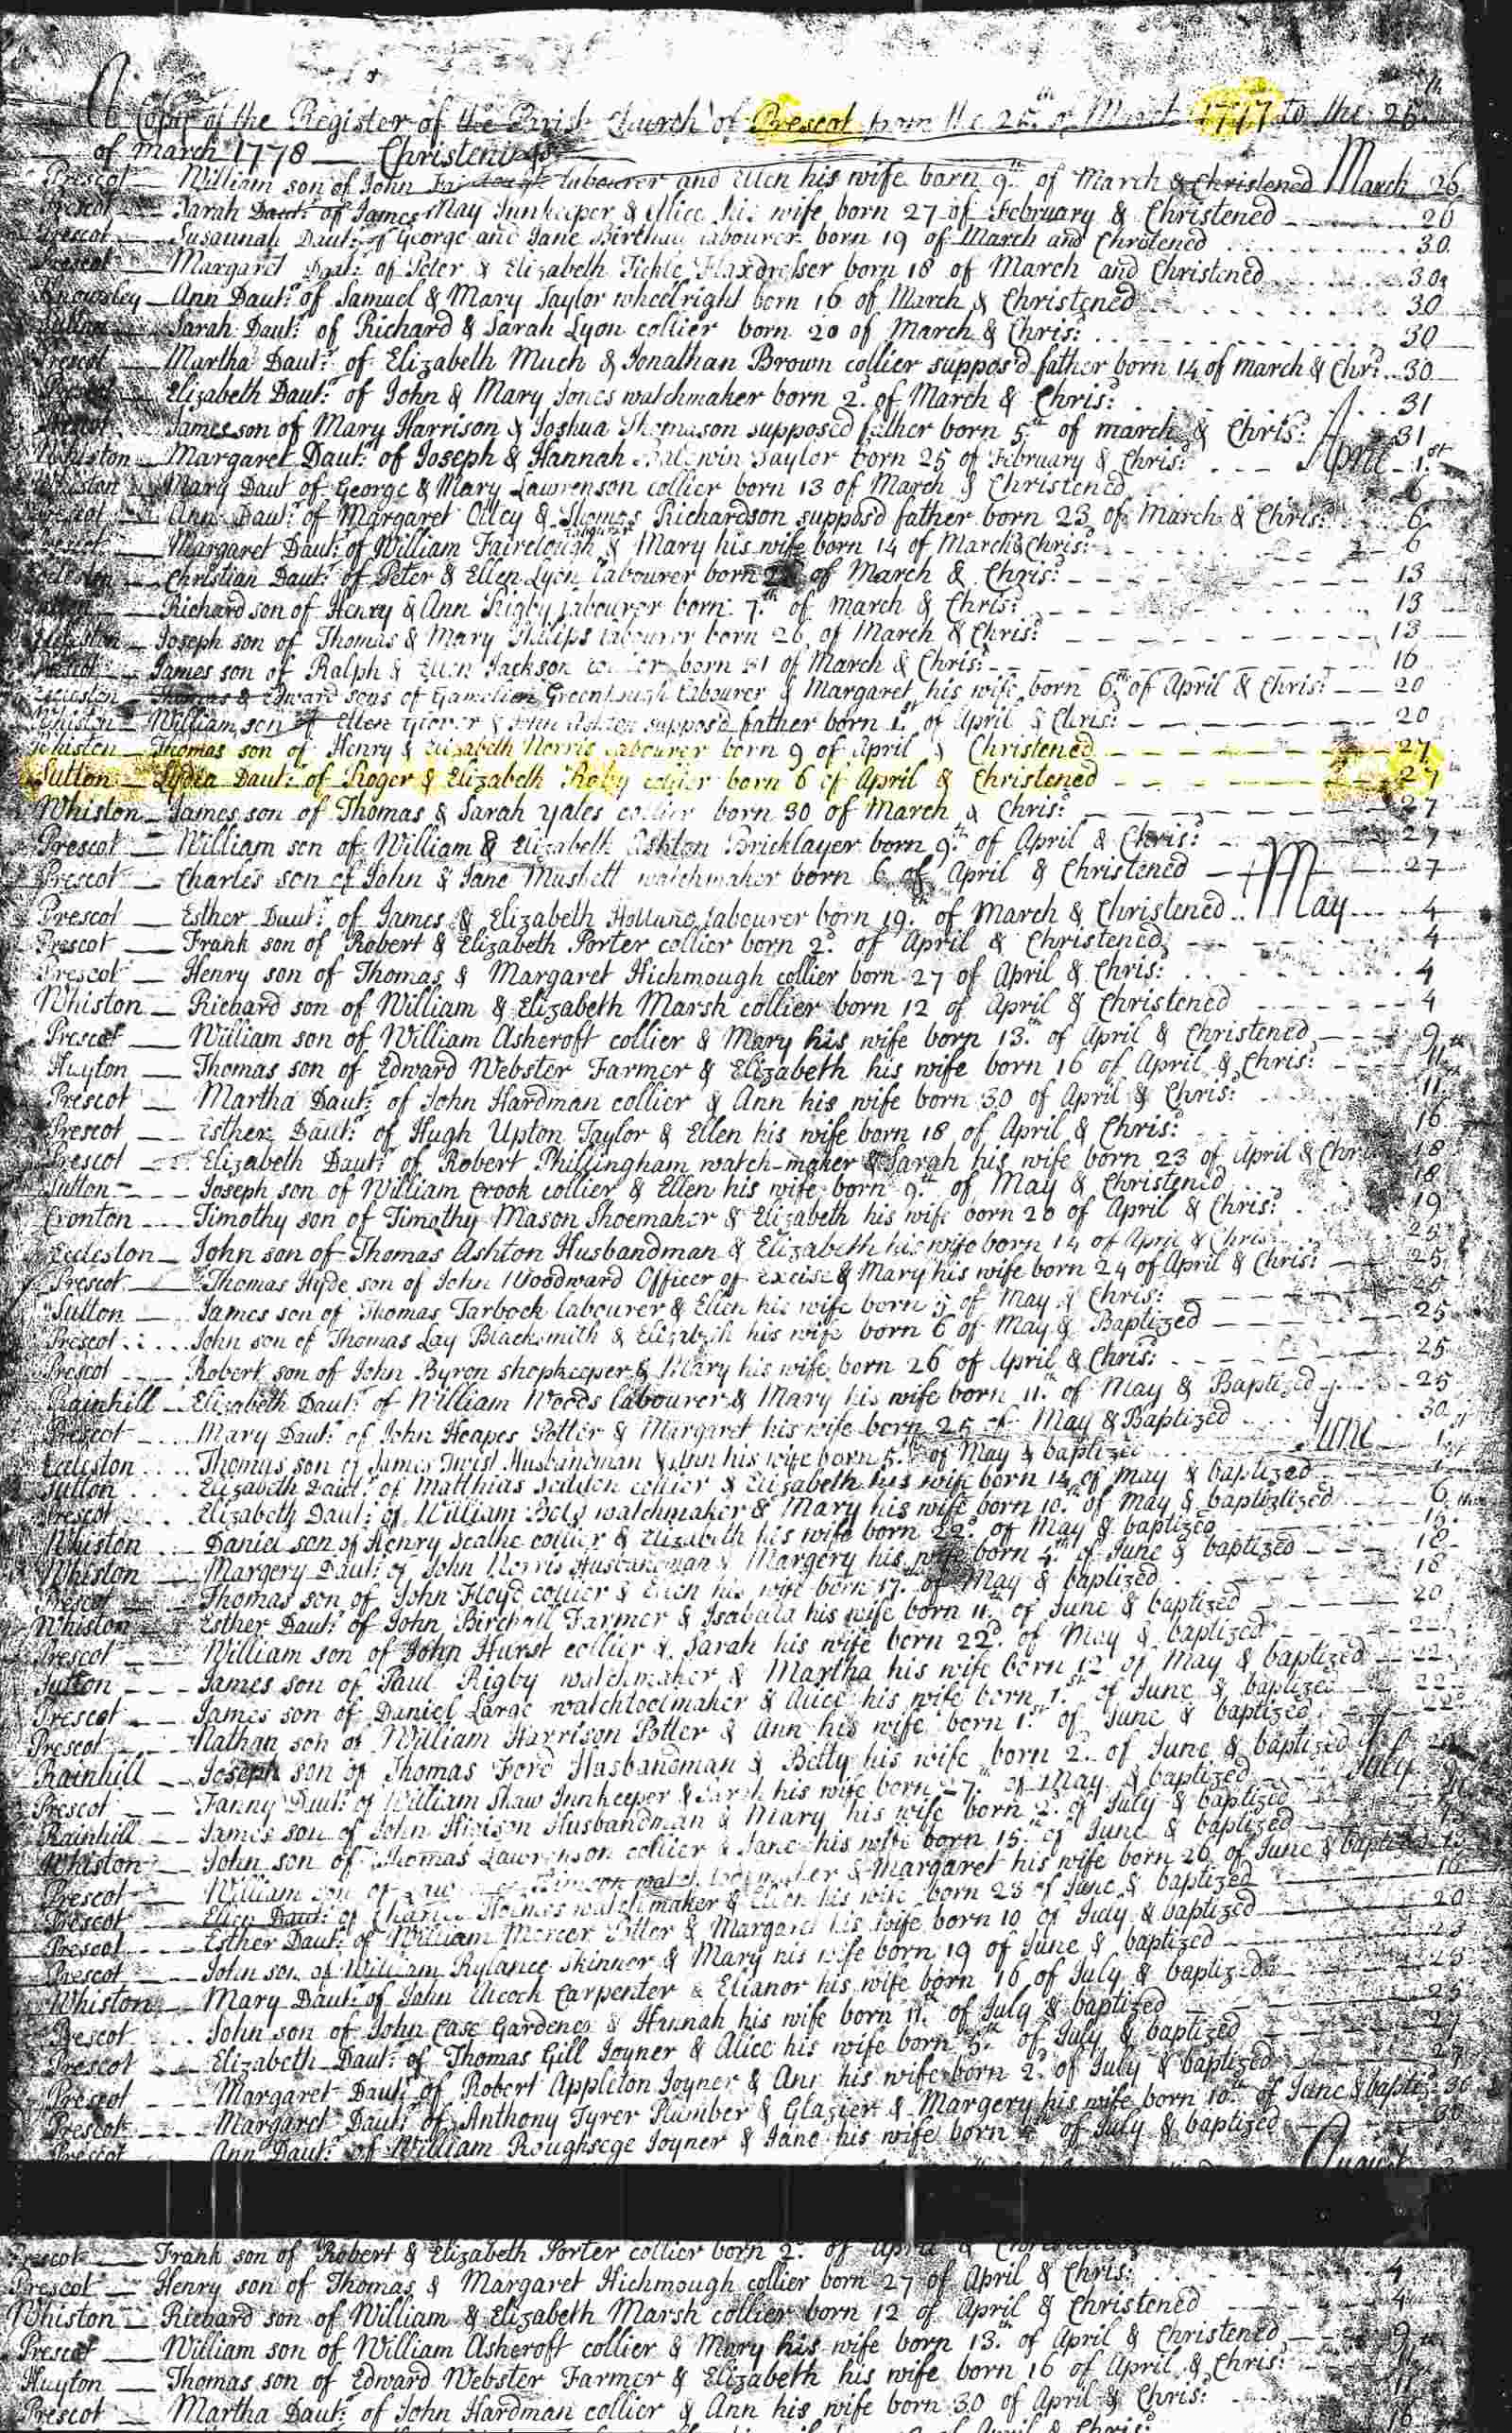 A Copy of the Register of the Parish Church of Prescot from the 25th of March 1777 to the 25th
of March 1778 — Christenings
Prescot — William son of John labourer and Ellen his wife born 9th of March & Christened March 26
Prescot — Sarah Daut.r of James May Innkeeper & Alice his wife born 27 of February & Christened 26
Prescot — Susannah Daut.r of George and Jane labourer born 19 of March and Christened 30
Prescot — Margaret Daut.r of Peter & Elizabeth Tickle Flaxdresser born 18 of March and Christened 30
Knowsley — Ann Daut.r of Samuel & Mary Taylor wheelright born 16 of March & Christened 30
Sutton — Sarah Daut.r of Richard & Sarah Lyon collier born 20 of March & Chris:d 30
Prescot — Martha Daut.r of Elizabeth Much & Jonathan Brown collier suppos'd father born 14 of march & Chr:d 30
Elizabeth Daut.r of John & Mary Jones watchmaker born 2d of March & Chris:d 31
Prescot James son of Mary Harrison & Joshua Thomason supposed father born 5th of march & Chris:d 31
Whiston — Margaret Daut.r of Joseph & Hannah Taylor born 25 of February & Chris:d April 1st
Whiston — Mary Daut of George & Mary Lawrenson collier born 13 of March & Christened 6
Prescot — Ann Daut.r of Margaret & Thomas Richardson suppos'd father born 23 of March & Chris:d 6
Prescot — Margaret Daut.r of William Fairclough labourer & Mary his wife born 14 of March & Chris:d 6
Eccleston — Christian Daut.r of Peter & Ellen Lyon labourer born of March & Chris:d 13
Richard son of Henry & Ann Rigby labourer born 7th of March & Chris:d 13
Joseph son of Thomas & Mary Phillips labourer born 26 of March & Chris:d 13
Prescot — James son of Ralph & Ellen Jackson born 31 of March & Chris:d 16
Eccleston — Thomas & Edward sons of Greenhough labourer & Margaret his wife born 6th of April & Chris:d 20
Whiston — William son of Ellen Glover & John Ashton suppos'd father born 1st of April & Chris:d 20
Whiston — Thomas son of Henry & Elizabeth Norris labourer born 9 of April & Christened 27
Sutton — Lydia Daut.r of Roger & Elizabeth Roby collier born 6 of April & Christened 27
Whiston — James son of Thomas & Sarah Yates collier born 30 of March & Chris:d 27
Prescot — William son of William & Elizabeth Ashton Bricklayer born 9th of April & Chris:d 27
Prescot — Charles son of John & Jane watchmaker born 6 of April & Christened 27
Prescot — Esther Daut.r of James & Elizabeth Holland labourer born 19th of March & Christened May 4
Prescot — Frank son of Robert & Elizabeth Porter collier born 2d of April & Christened 4
Prescot — Henry son of Thomas & Margaret Hichmough collier born 27 of April & Chris:d 4
Whiston — Richard son of William & Elizabeth Marsh collier born 12 of April & Christened 4
Prescot — William son of William Ashcroft collier & Mary his wife born 13th of April & Christened 9
Huyton — Thomas son of Edward Webster Farmer & Elizabeth his wife born 16 of April & Chris:d 11th
Prescot — Martha Daut.r of John Hardman collier & Ann his wife born 30 of April & Chris:d 11
Prescot — Esther Daut.r of Hugh Upton Taylor & Ellen his wife born 18 of April & Chris:d 16
Prescot — Elizabeth Daut.r of Robert Phillingham watch-maker & Sarah his wife born 23 of April & Chr 18
Sutton — Joseph son of William Crook collier & Ellen his wife born 9th of May & Christened 18
Cronton — Timothy son of Timothy Mason Shoemaker & Elizabeth his wife born 20 of April & Chris:d 19
Eccleston — John son of Thomas Ashton Husbandman & Elizabeth his wife born 14 of April & Chris: 25
Prescot — Thomas Hyde son of John Woodward Officer of Excise & Mary his wife born 24 of April & Chris:d 25
Sutton — James son of Thomas Tarbock labourer & Ellen his wife born of May & Chris:d 25
Prescot — John son of Thomas Lay Blacksmith & Elizabeth his wife born 6 of May & Baptized 25
Prescot Robert son of John Byron shopkeeper & Mary his wife born 26 of April & Chris:d 25
Rainhill — Elizabeth Daut.r of William Woods labourer & Mary his wife born 11th of May & Baptized 25
Prescot — Mary Daut.r of John Heapes Potter & Margaret his wife born 25 of May & Baptized 30
Eccleston Thomas son of James Twist Husbandman & Ann his wife born 5th of May & baptized June 1st
Sutton Elizabeth Daut.r of Matthias collier & Elizabeth his wife born 14 of May & baptized
Prescot Elizabeth Daut.r of William Bold watchmaker & Mary his wife born 10th of May & baptizlized 6
Whiston Daniel son of Henry collier & Elizabeth his wife born 22d of May & baptized 15th
Whiston — Margery Daut.r of John Norris Husbandman & Margery his wife born 4th of June & baptized 18
Prescot Thomas son of John Floyd collier & Ellen his wife born 17th of May & baptized 18
Whiston Esther Daut.r of John Birchall Farmer & Isabella his wife born 11th of June & baptized 20
Prescot — William son of John Hurst collier & Sarah his wife born 22d of May & baptized 22
Sutton — James son of Paul Rigby watchmaker & Martha his wife born 12 of May & baptized 22
Prescot — James son of Daniel Large watchtoolmaker & Alice his wife born 1st of June & baptized 22
Prescot — Nathan son of William Harrison Potter & Ann his wife born 1st of June & baptized 22d
Rainhill — Joseph son of Thomas Ford Husbandman & Betty his wife born 2d of June & baptized
Prescot — Fanny Daut.r of William Shaw Innkeeper & Sarah his wife born 27th of May & baptized July
Rainhill — James son of John Husbandman & Mary his wife born 2d of July & baptized
Whiston — John son of Thomas Lawrenson collier & Jane his wife born 15th of June & baptized
Prescot — William son of & Margaret his wife born 26 of June & baptized
Prescot Daut.r of Charles Holmes watchmaker & Ellen his wife born 23 of June & baptized 16
Prescot Esther Daut.r of William Mercer Potter & Margaret his wife born 10 of July & baptized 20
Prescot John son of William Rylance Skinner & Mary his wife born 19 of June & baptized 23
Whiston — Mary Daut.r of John Alcock Carpenter & Elianor his wife born 16 of July & baptized 25
Prescot John son of John Case Gardener & Hannah his wife born 11th of July & baptized 25
Prescot Elizabeth Daut.r of Thomas Gill Joyner & Alice his wife born 5th of July & baptized 27
Prescot Margaret Daut.r of Robert Appleton Joyner & Ann his wife born 2d of July & baptized 27
Prescot Margaret Daut.r of Anthony Tyrer Plumber & Glazier & Margery his wife born 10th of June & baptiz: 30
Prescot Ann Daut.r of William Roughsege Joyner & Jane his wife born of July & baptized 30
August
Prescot — Frank son of Robert & Elizabeth Porter collier born 2d of April & Christened
Prescot — Henry son of Thomas & Margaret Hichmough collier born 27 of April & Chris: 4
Whiston — Richard son of William & Elizabeth Marsh collier born 12 of April & Christened 4
Prescot — William son of William Ashcroft collier & Mary his wife born 13th of April & Christened 9
Huyton — Thomas son of Edward Webster Farmer & Elizabeth his wife born 16 of April & Chris:d 11
Prescot — Martha Daut.r of John Hardman collier & Ann his wife born 30 of April & Chris:d